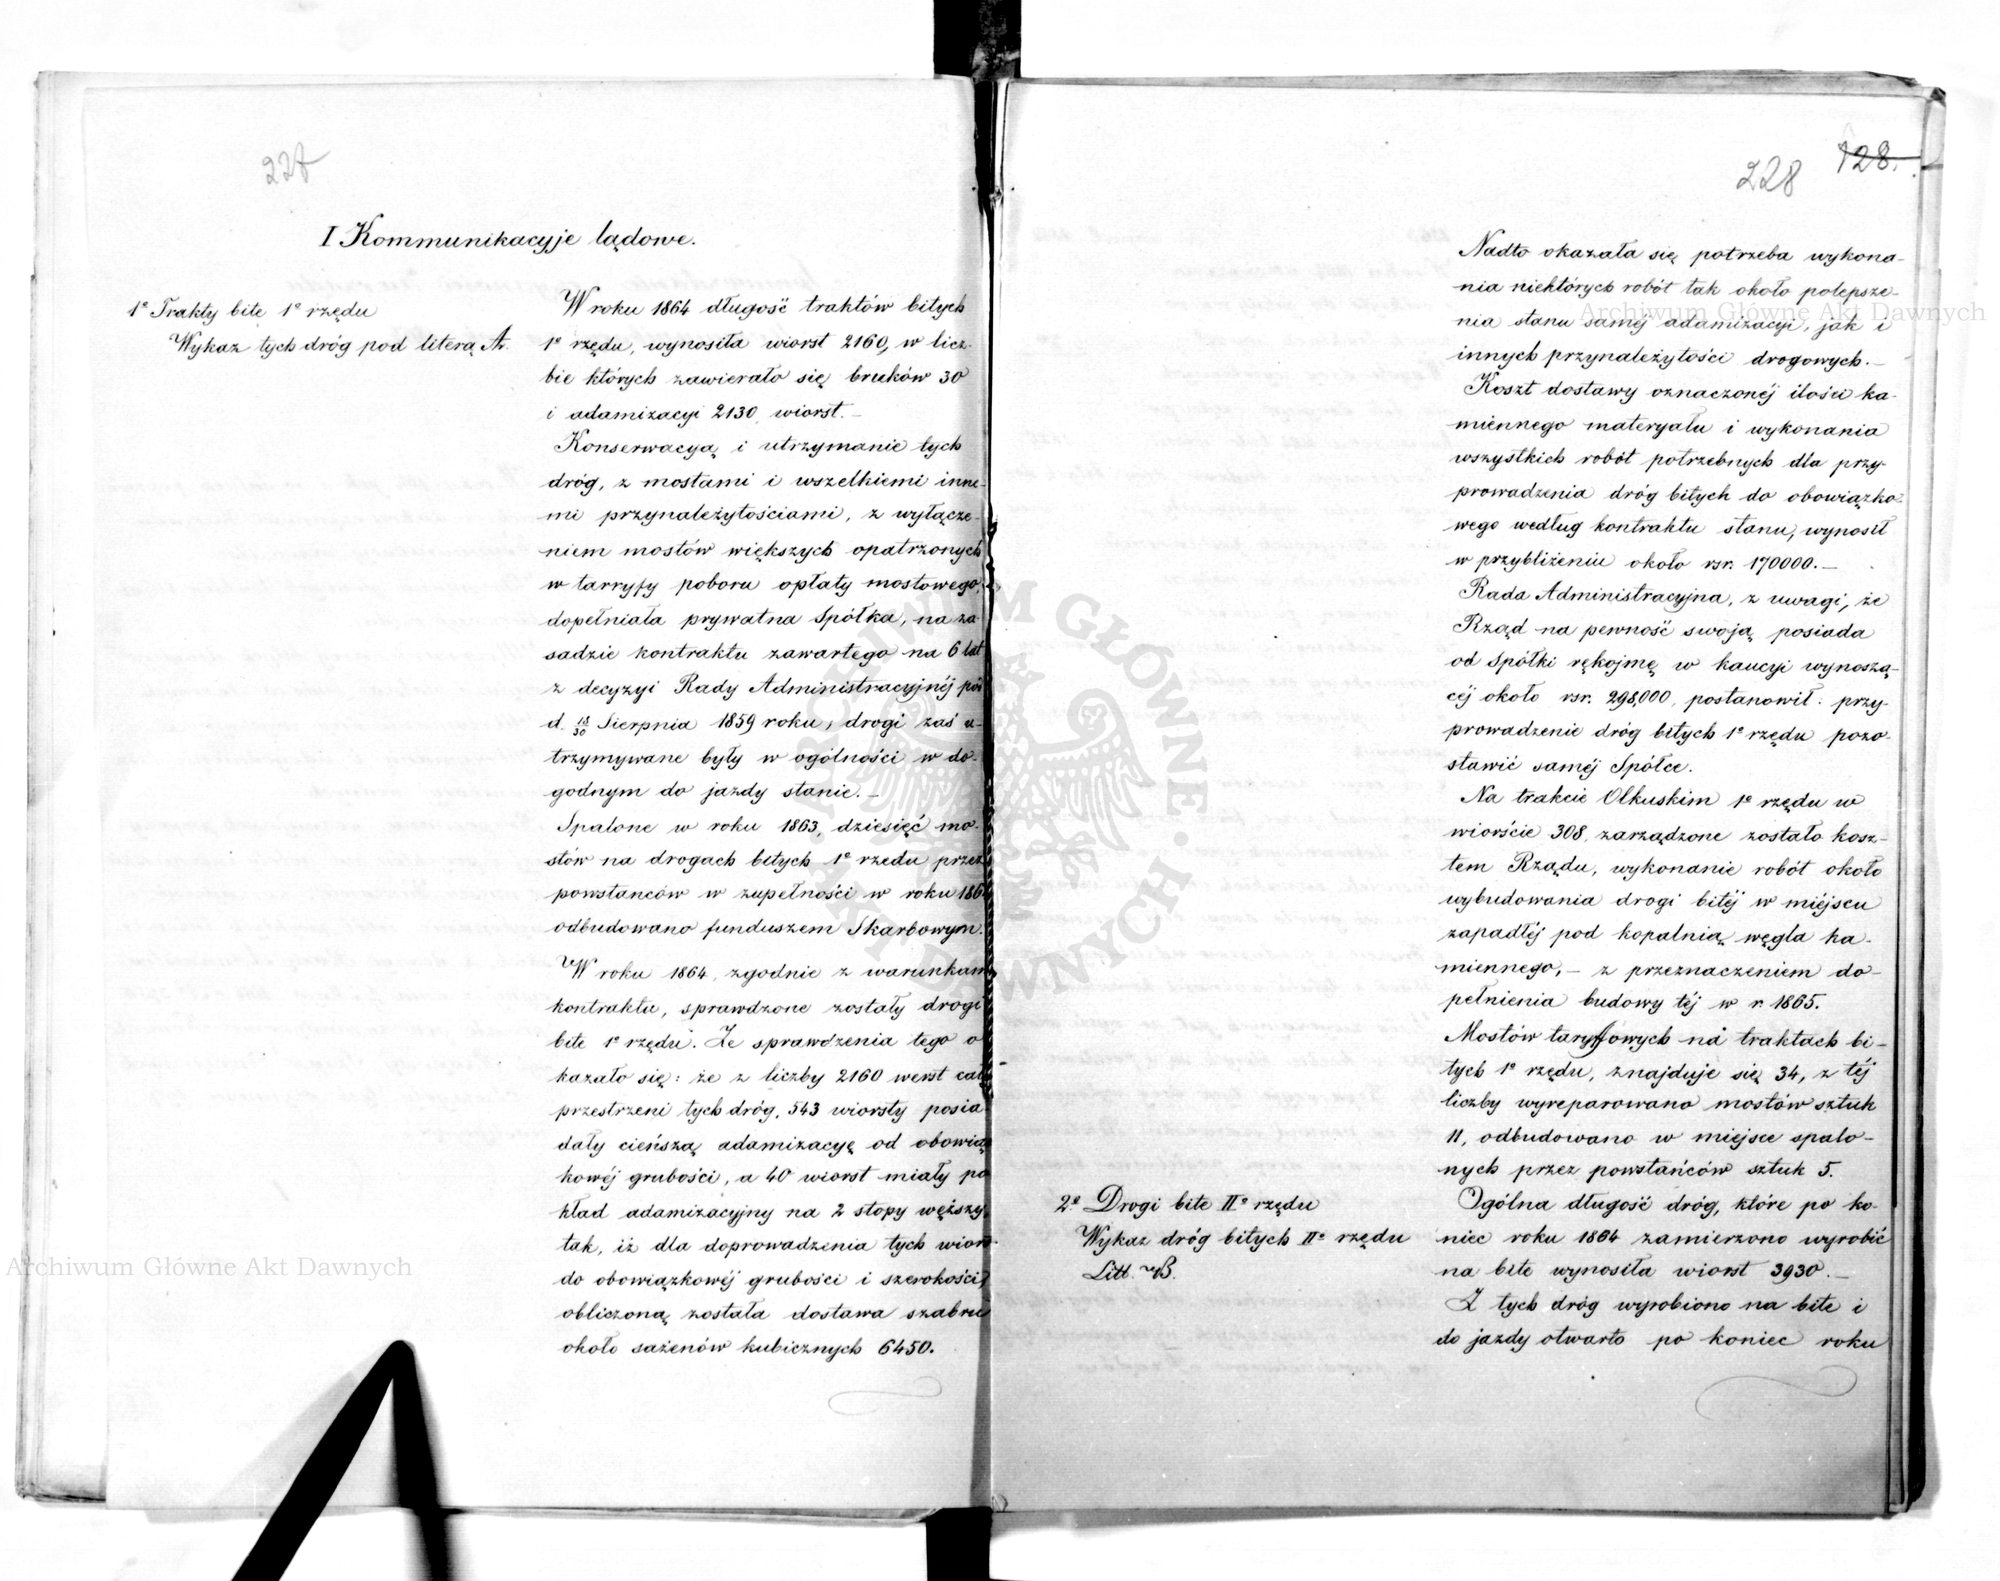 227
I Kommunikacyje lądowe.
1º Trakty bite 1º rzędu
Wykaz tych dróg pod literą A.
W roku 1864 długość traktów bitych
1º rzędu, wynosiła wiorst 2160, w licz-
bie których zawierało się bruków 30
i adamizacyi 2130 wiorst.—
Konserwacyą i utrzymanie tych
dróg, z mostami i wszelkiemi inne-
mi przynależytościami, z wyłącze-
niem mostów większych opatrzonych
w tarryfy poboru opłaty mostowego,
dopełniała prywatna Spółka, na za
sadzie kontraktu zawartego na 6 lat
z decyzyi Rady Administracyjnéj pod
d. 18/30 Sierpnia 1859 roku, drogi zaś u-
trzymywane były w ogólności w do-
godnym do jazdy stanie.—
Spalone w roku 1863, dziesięć mo-
stów na drogach bitych 1º rzedu przez
powstanców w zupełności w roku 1864
odbudowano funduszem Skarbowym.
W roku 1864, zgodnie z warunkami
kontraktu, sprawdzone zostały drogi
bite 1º rzędu. Ze sprawdzenia tego o
kazało się: że z liczby 2160 werst całej
przestrzeni tych dróg, 543 wiorsty posia
dały cieńszą adamizacyę od obowiąz
kowéj grubości, a 40 wiorst miały po
kład adamizacyjny na 2 stopy węższy,
tak, iż dla doprowadzenia tych wiorst
do obowiązkowéj grubości i szerokości,
obliczoną została dostawa szabru
około sażenów kubicznych 6450.
228
128.
Nadto okazała się potrzeba wykona-
nia niektórych robót tak około polepsze-
nia stanu saméj adamizacyi, jak i
innych przynależytości drogowych.—
Koszt dostawy oznaczonéj ilości ka-
miennego materyału i wykonania
wszystkich robót potrzebnych dla przy-
prowadzenia dróg bitych do obowiązko-
wego według kontraktu stanu, wynosił
w przybliżeniu około rsr. 170000.—
Rada Administracyjna, z uwagi, że
Rząd na pewność swoją posiada
od Spółki rękojmę w kaucyi wynoszą-
céj około rsr. 298,000, postanowił: przy-
prowadzenie dróg bitych 1º rzędu pozo-
stawić saméj Spółce.
Na trakcie Olkuskim 1º rzędu w
wiorście 308, zarządzone zostało kosz-
tem Rządu, wykonanie robót około
wybudowania drogi bitéj w miéjscu
zapadłéj pod kopalnią węgla ka-
miennego,— z przeznaczeniem do-
pełnienia budowy téj w r. 1865.
Mostów taryffowych na traktach bi-
tych 1º rzędu, znajduje się 34, z téj
liczby wyreparowano mostów sztuk
11, odbudowano w miejsce spalo-
nych przez powstańców sztuk 5.
2º Drogi bite IIº rzędu
Wykaz dróg bitych IIº rzędu
Litt. B.
Ogólna długość dróg, które po ko-
niec roku 1864 zamierzono wyrobić
na bite wynosiła wiorst 3930.—
Z tych dróg wyrobiono na bite i
do jazdy otwarto po koniec roku
Archiwum Główne Akt Dawnych
Archiwum Główne Akt Dawnych
ARCHIWUM GŁÓWNE AKT DAWNYCH